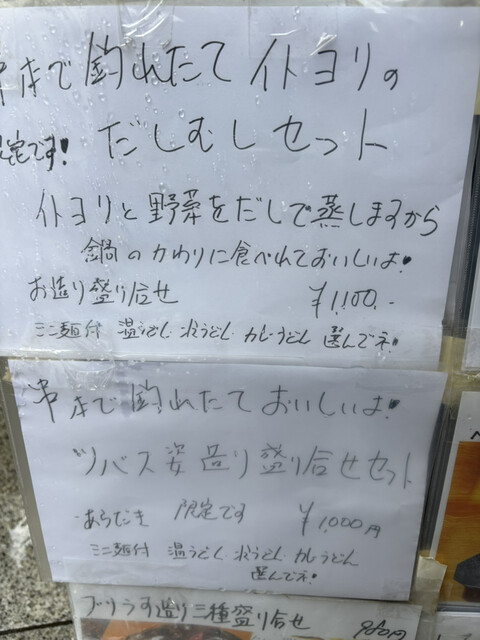 串本で釣れたてイトヨリの
限定です! だしむしセット
イトヨリと野菜をだしで蒸しますから
鍋のかわりに食べれておいしいよ!
お造り盛り合せ ¥1,100.-
ミニ麺付 温うどん・冷うどん・カレーうどん 選んでネ!
串本で釣れたておいしいよ!
ツバス姿造り盛り合せセット
あらだき 限定です ¥1,000円
ミニ麺付 温うどん・冷うどん・カレーうどん
選んでネ!
ブリうす造り三種盛り合せ 980円